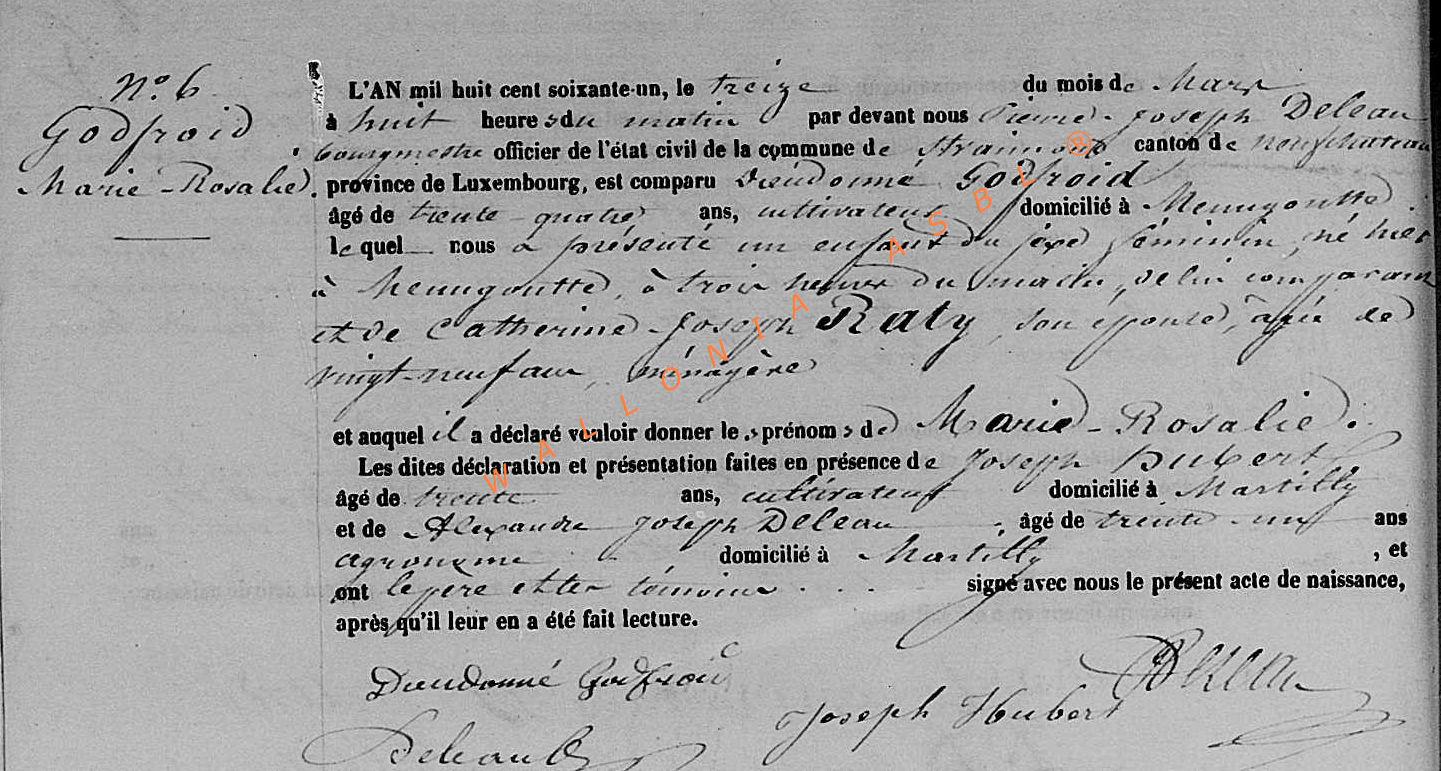 N.o 6
Godfroid
Marie-Rosalie.
L'AN mil huit cent soixante-un, le treize du mois de Mars
à huit heures du matin par devant nous Pierre-Joseph Deleau
bourgmestre officier de l'état civil de la commune de Straimont canton de neufchateau
province de Luxembourg, est comparu Dieudonné Godfroid
âgé de trente-quatre ans, cultivateur domicilié à Menugoutte
lequel nous a présenté un enfant du sexe féminin, né hier
à Menugoutte, à trois heures du matin, de lui comparant
et de Catherine-Joseph Raty, son épouse, agée de
vingt-neuf ans, ménagère
et auquel il a déclaré vouloir donner les prénoms de Marie-Rosalie.
Les dites déclaration et présentation faites en présence de Joseph Hubert
âgé de trente ans, cultivateur domicilié à Martilly
et de Alexandre Joseph Deleau, âgé de trente-un ans
agronome domicilié à Martilly, et
ont le père et les témoins signé avec nous le présent acte de naissance,
après qu'il leur en a été fait lecture.
Dieudonné Godfroid
Joseph Hubert
WALLONIA ASBL ®